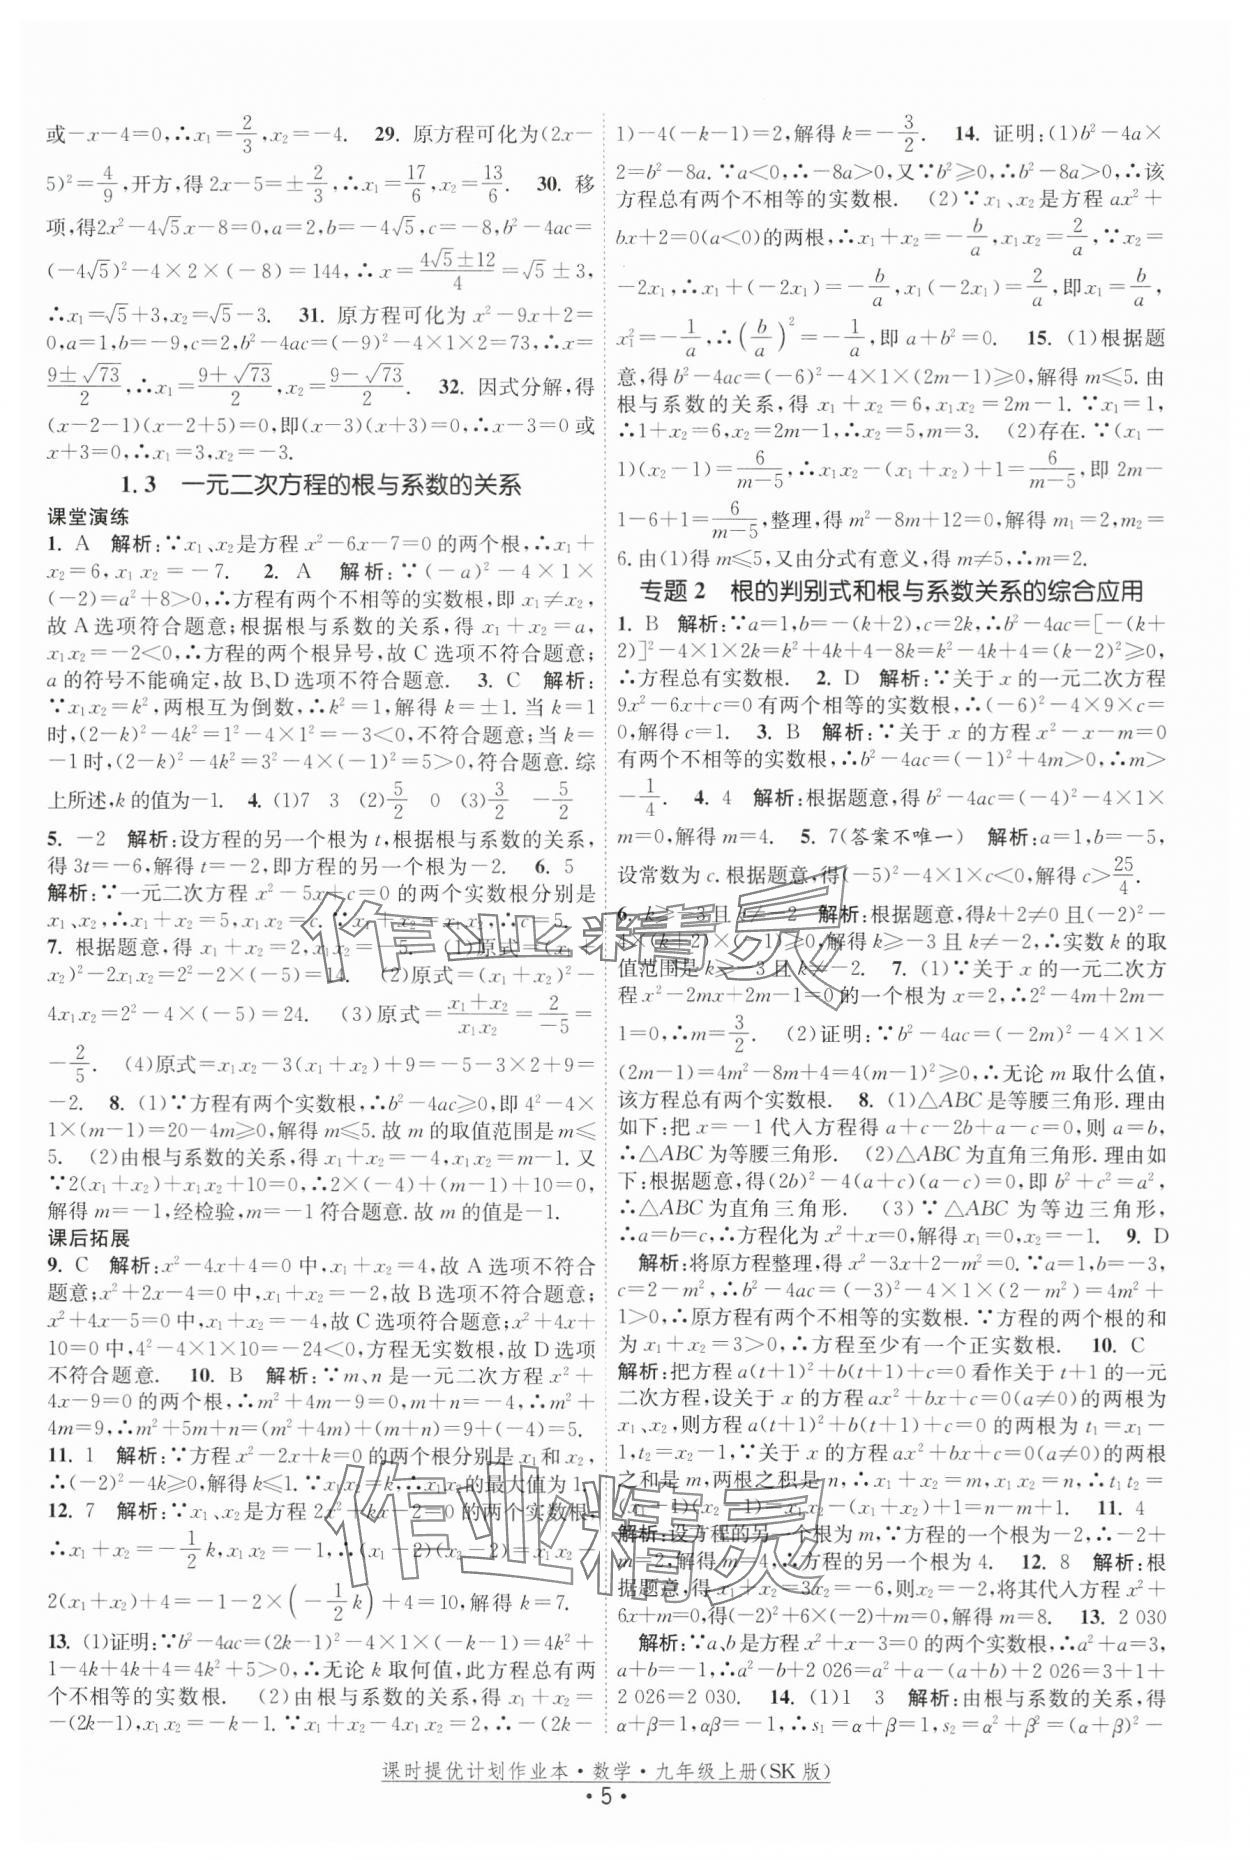 或－x－4＝0,∴x₁＝2/3,x₂＝－4.　29. 原方程可化为(2x－
5)²＝4/9,开方,得 2x－5＝±2/3,∴x₁＝17/6,x₂＝13/6.　30. 移
项,得2x²－4√5x－8＝0,a＝2,b＝－4√5,c＝－8,b²－4ac＝
(－4√5)²－4×2×(－8)＝144,∴x＝(4√5±12)/4＝√5±3,
∴x₁＝√5＋3,x₂＝√5－3.　31. 原方程可化为 x²－9x＋2＝
0,a＝1,b＝－9,c＝2,b²－4ac＝(－9)²－4×1×2＝73,∴x＝
(9±√73)/2,∴x₁＝(9＋√73)/2,x₂＝(9－√73)/2.　32. 因式分解,得
(x－2－1)(x－2＋5)＝0,即(x－3)(x＋3)＝0,∴x－3＝0 或
x＋3＝0,∴x₁＝3,x₂＝－3.
1.3　一元二次方程的根与系数的关系
课堂演练
1. A　解析:∵x₁、x₂是方程 x²－6x－7＝0 的两个根,∴x₁＋
x₂＝6,x₁x₂＝－7.　2. A　解析:∵(－a)²－4×1×
(－2)＝a²＋8＞0,∴方程有两个不相等的实数根,即 x₁≠x₂,
故 A 选项符合题意;根据根与系数的关系,得 x₁＋x₂＝a,
x₁x₂＝－2＜0,∴方程的两个根异号,故 C 选项不符合题意;
a 的符号不能确定,故 B、D 选项不符合题意.　3. C　解析:
∵x₁x₂＝k²,两根互为倒数,∴k²＝1,解得 k＝±1. 当 k＝1
时,(2－k)²－4k²＝1²－4×1²＝－3＜0,不符合题意;当 k＝
－1 时,(2－k)²－4k²＝3²－4×(－1)²＝5＞0,符合题意.综
上所述,k 的值为－1.　4. (1)7　3　(2)5/2　0　(3)3/2　－5/2
5. －2　解析:设方程的另一个根为 t,根据根与系数的关系,
得 3t＝－6,解得 t＝－2,即方程的另一个根为－2.　6. 5
解析:∵一元二次方程 x²－5x＋c＝0 的两个实数根分别是
x₁、x₂,∴x₁＋x₂＝5,x₁x₂＝c.∵x₁＋x₂＝x₁x₂,∴c＝5.
7. 根据题意,得 x₁＋x₂＝2,x₁x₂＝－5.　(1)原式＝(x₁＋
x₂)²－2x₁x₂＝2²－2×(－5)＝14.　(2)原式＝(x₁＋x₂)²－
4x₁x₂＝2²－4×(－5)＝24.　(3)原式＝(x₁＋x₂)/(x₁x₂)＝2/(－5)＝
－2/5.　(4)原式＝x₁x₂－3(x₁＋x₂)＋9＝－5－3×2＋9＝
－2.　8. (1)∵方程有两个实数根,∴b²－4ac≥0,即 4²－4×
1×(m－1)＝20－4m≥0,解得 m≤5.故 m 的取值范围是 m≤
5.　(2)由根与系数的关系,得 x₁＋x₂＝－4,x₁x₂＝m－1.又
∵2(x₁＋x₂)＋x₁x₂＋10＝0,∴2×(－4)＋(m－1)＋10＝0,
解得 m＝－1,经检验,m＝－1 符合题意.故 m 的值是－1.
课后拓展
9. C　解析:x²－4x＋4＝0 中,x₁＋x₂＝4,故 A 选项不符合
题意;x²＋2x－4＝0 中,x₁＋x₂＝－2,故 B 选项不符合题意;
x²＋4x－5＝0 中,x₁＋x₂＝－4,故 C 选项符合题意;x²＋4x＋
10＝0 中,4²－4×1×10＝－24＜0,方程无实数根,故 D 选项
不符合题意.　10. B　解析:∵m、n 是一元二次方程 x²＋
4x－9＝0 的两个根,∴m²＋4m－9＝0,m＋n＝－4,∴m²＋
4m＝9,∴m²＋5m＋n＝(m²＋4m)＋(m＋n)＝9＋(－4)＝5.
11. 1　解析:∵方程 x²－2x＋k＝0 的两个根分别是 x₁ 和 x₂,
∴(－2)²－4k≥0,解得 k≤1.∵x₁x₂＝k,∴x₁x₂ 的最大值为 1.
12. 7　解析:∵x₁、x₂是方程 2x²＋kx－2＝0 的两个实数根,
∴x₁＋x₂＝－1/2k,x₁x₂＝－1,∴(x₁－2)(x₂－2)＝x₁x₂－
2(x₁＋x₂)＋4＝－1－2×(－1/2k)＋4＝10,解得 k＝7.
13. (1)证明:∵b²－4ac＝(2k－1)²－4×1×(－k－1)＝4k²＋
1－4k＋4k＋4＝4k²＋5＞0,∴无论 k 取何值,此方程总有两
个不相等的实数根.　(2)由根与系数的关系,得 x₁＋x₂＝
－(2k－1),x₁x₂＝－k－1.∵x₁＋x₂－4x₁x₂＝2,∴－(2k－
1)－4(－k－1)＝2,解得 k＝－3/2.　14. 证明:(1)b²－4a×
2＝b²－8a.∵a＜0,∴－8a＞0,又∵b²≥0,∴b²－8a＞0,∴该
方程总有两个不相等的实数根.　(2)∵x₁、x₂是方程 ax²＋
bx＋2＝0(a＜0)的两根,∴x₁＋x₂＝－b/a,x₁x₂＝2/a,∵x₂＝
－2x₁,∴x₁＋(－2x₁)＝－b/a,x₁(－2x₁)＝2/a,即x₁＝b/a,
x₁²＝－1/a,∴(b/a)²＝－1/a,即 a＋b²＝0.　15. (1)根据题
意,得 b²－4ac＝(－6)²－4×1×(2m－1)≥0,解得 m≤5.由
根与系数的关系,得 x₁＋x₂＝6,x₁x₂＝2m－1.∵x₁＝1,
∴1＋x₂＝6,x₂＝2m－1,∴x₂＝5,m＝3.　(2)存在.∵(x₁－
1)(x₂－1)＝6/(m－5),∴x₁x₂－(x₁＋x₂)＋1＝6/(m－5),即 2m－
1－6＋1＝6/(m－5),整理,得 m²－8m＋12＝0,解得 m₁＝2,m₂＝
6.由(1)得 m≤5,又由分式有意义,得 m≠5,∴m＝2.
专题 2　根的判别式和根与系数关系的综合应用
1. B　解析:∵a＝1,b＝－(k＋2),c＝2k,∴b²－4ac＝[－(k＋
2)]²－4×1×2k＝k²＋4k＋4－8k＝k²－4k＋4＝(k－2)²≥0,
∴方程总有实数根.　2. D　解析:∵关于 x 的一元二次方程
9x²－6x＋c＝0 有两个相等的实数根,∴(－6)²－4×9×c＝
0,解得 c＝1.　3. B　解析:∵关于 x 的方程 x²－x－m＝0
有两个不相等的实数根,∴b²－4ac＝(－1)²＋4m＞0,∴m＞
－1/4.　4. 4　解析:根据题意,得 b²－4ac＝(－4)²－4×1×
m＝0,解得 m＝4.　5. 7(答案不唯一)　解析:a＝1,b＝－5,
设常数为 c.根据题意,得(－5)²－4×1×c＜0,解得 c＞25/4.
6. k≥－3且 k≠－2　解析:根据题意,得k＋2≠0 且(－2)²－
4×(k＋2)×(－1)≥0,解得 k≥－3 且 k≠－2,∴实数 k 的取
值范围是 k≥－3且 k≠－2.　7. (1)∵关于 x 的一元二次方
程 x²－2mx＋2m－1＝0 的一个根为 x＝2,∴2²－4m＋2m－
1＝0,∴m＝3/2.　(2)证明:∵b²－4ac＝(－2m)²－4×1×
(2m－1)＝4m²－8m＋4＝4(m－1)²≥0,∴无论 m 取什么值,
该方程总有两个实数根.　8. (1)△ABC 是等腰三角形.理由
如下:把 x＝－1 代入方程得 a＋c－2b＋a－c＝0,则 a＝b,
∴△ABC 为等腰三角形.　(2)△ABC 为直角三角形.理由如
下:根据题意,得(2b)²－4(a＋c)(a－c)＝0,即 b²＋c²＝a²,
∴△ABC 为直角三角形.　(3)∵△ABC 为等边三角形,
∴a＝b＝c,∴方程化为 x²＋x＝0,解得 x₁＝0,x₂＝－1.　9. D
解析:将原方程整理,得 x²－3x＋2－m²＝0.∵a＝1,b＝－3,
c＝2－m²,∴b²－4ac＝(－3)²－4×1×(2－m²)＝4m²＋
1＞0,∴原方程有两个不相等的实数根.∵方程的两个根的和
为 x₁＋x₂＝3＞0,∴方程至少有一个正实数根.　10. C
解析:把方程 a(t＋1)²＋b(t＋1)＋c＝0 看作关于 t＋1 的一元
二次方程,设关于 x 的方程 ax²＋bx＋c＝0(a≠0)的两根为
x₁、x₂,则方程 a(t＋1)²＋b(t＋1)＋c＝0 的两根为 t₁＝x₁－
1,t₂＝x₂－1,∵关于 x 的方程 ax²＋bx＋c＝0(a≠0)的两根
之和是 m,两根之积是 n,∴x₁＋x₂＝m,x₁x₂＝n,∴t₁t₂＝
(x₁－1)(x₂－1)＝x₁x₂－(x₁＋x₂)＋1＝n－m＋1.　11. 4
解析:设方程的另一个根为 m,∵方程的一个根为－2,∴－2＋
m＝2,解得 m＝4,∴方程的另一个根为 4.　12. 8　解析:根
据题意,得 x₁＋x₂＝x₁＋2x₂＝－6,则x₂＝－2,将其代入方程 x²＋
6x＋m＝0,得(－2)²＋6×(－2)＋m＝0,解得 m＝8.　13. 2 030
解析:∵a、b是方程 x²＋x－3＝0 的两个实数根,∴a²＋a＝3,
a＋b＝－1,∴a²－b＋2 026＝a²＋a－(a＋b)＋2 026＝3＋1＋
2 026＝2 030.　14. (1)1　3　解析:由根与系数的关系,得
α＋β＝1,αβ＝－1,∴s₁＝α＋β＝1,s₂＝α²＋β²＝(α＋β)²－
课时提优计划作业本·数学·九年级上册(SK 版)
·5·
作业精灵
作业精灵